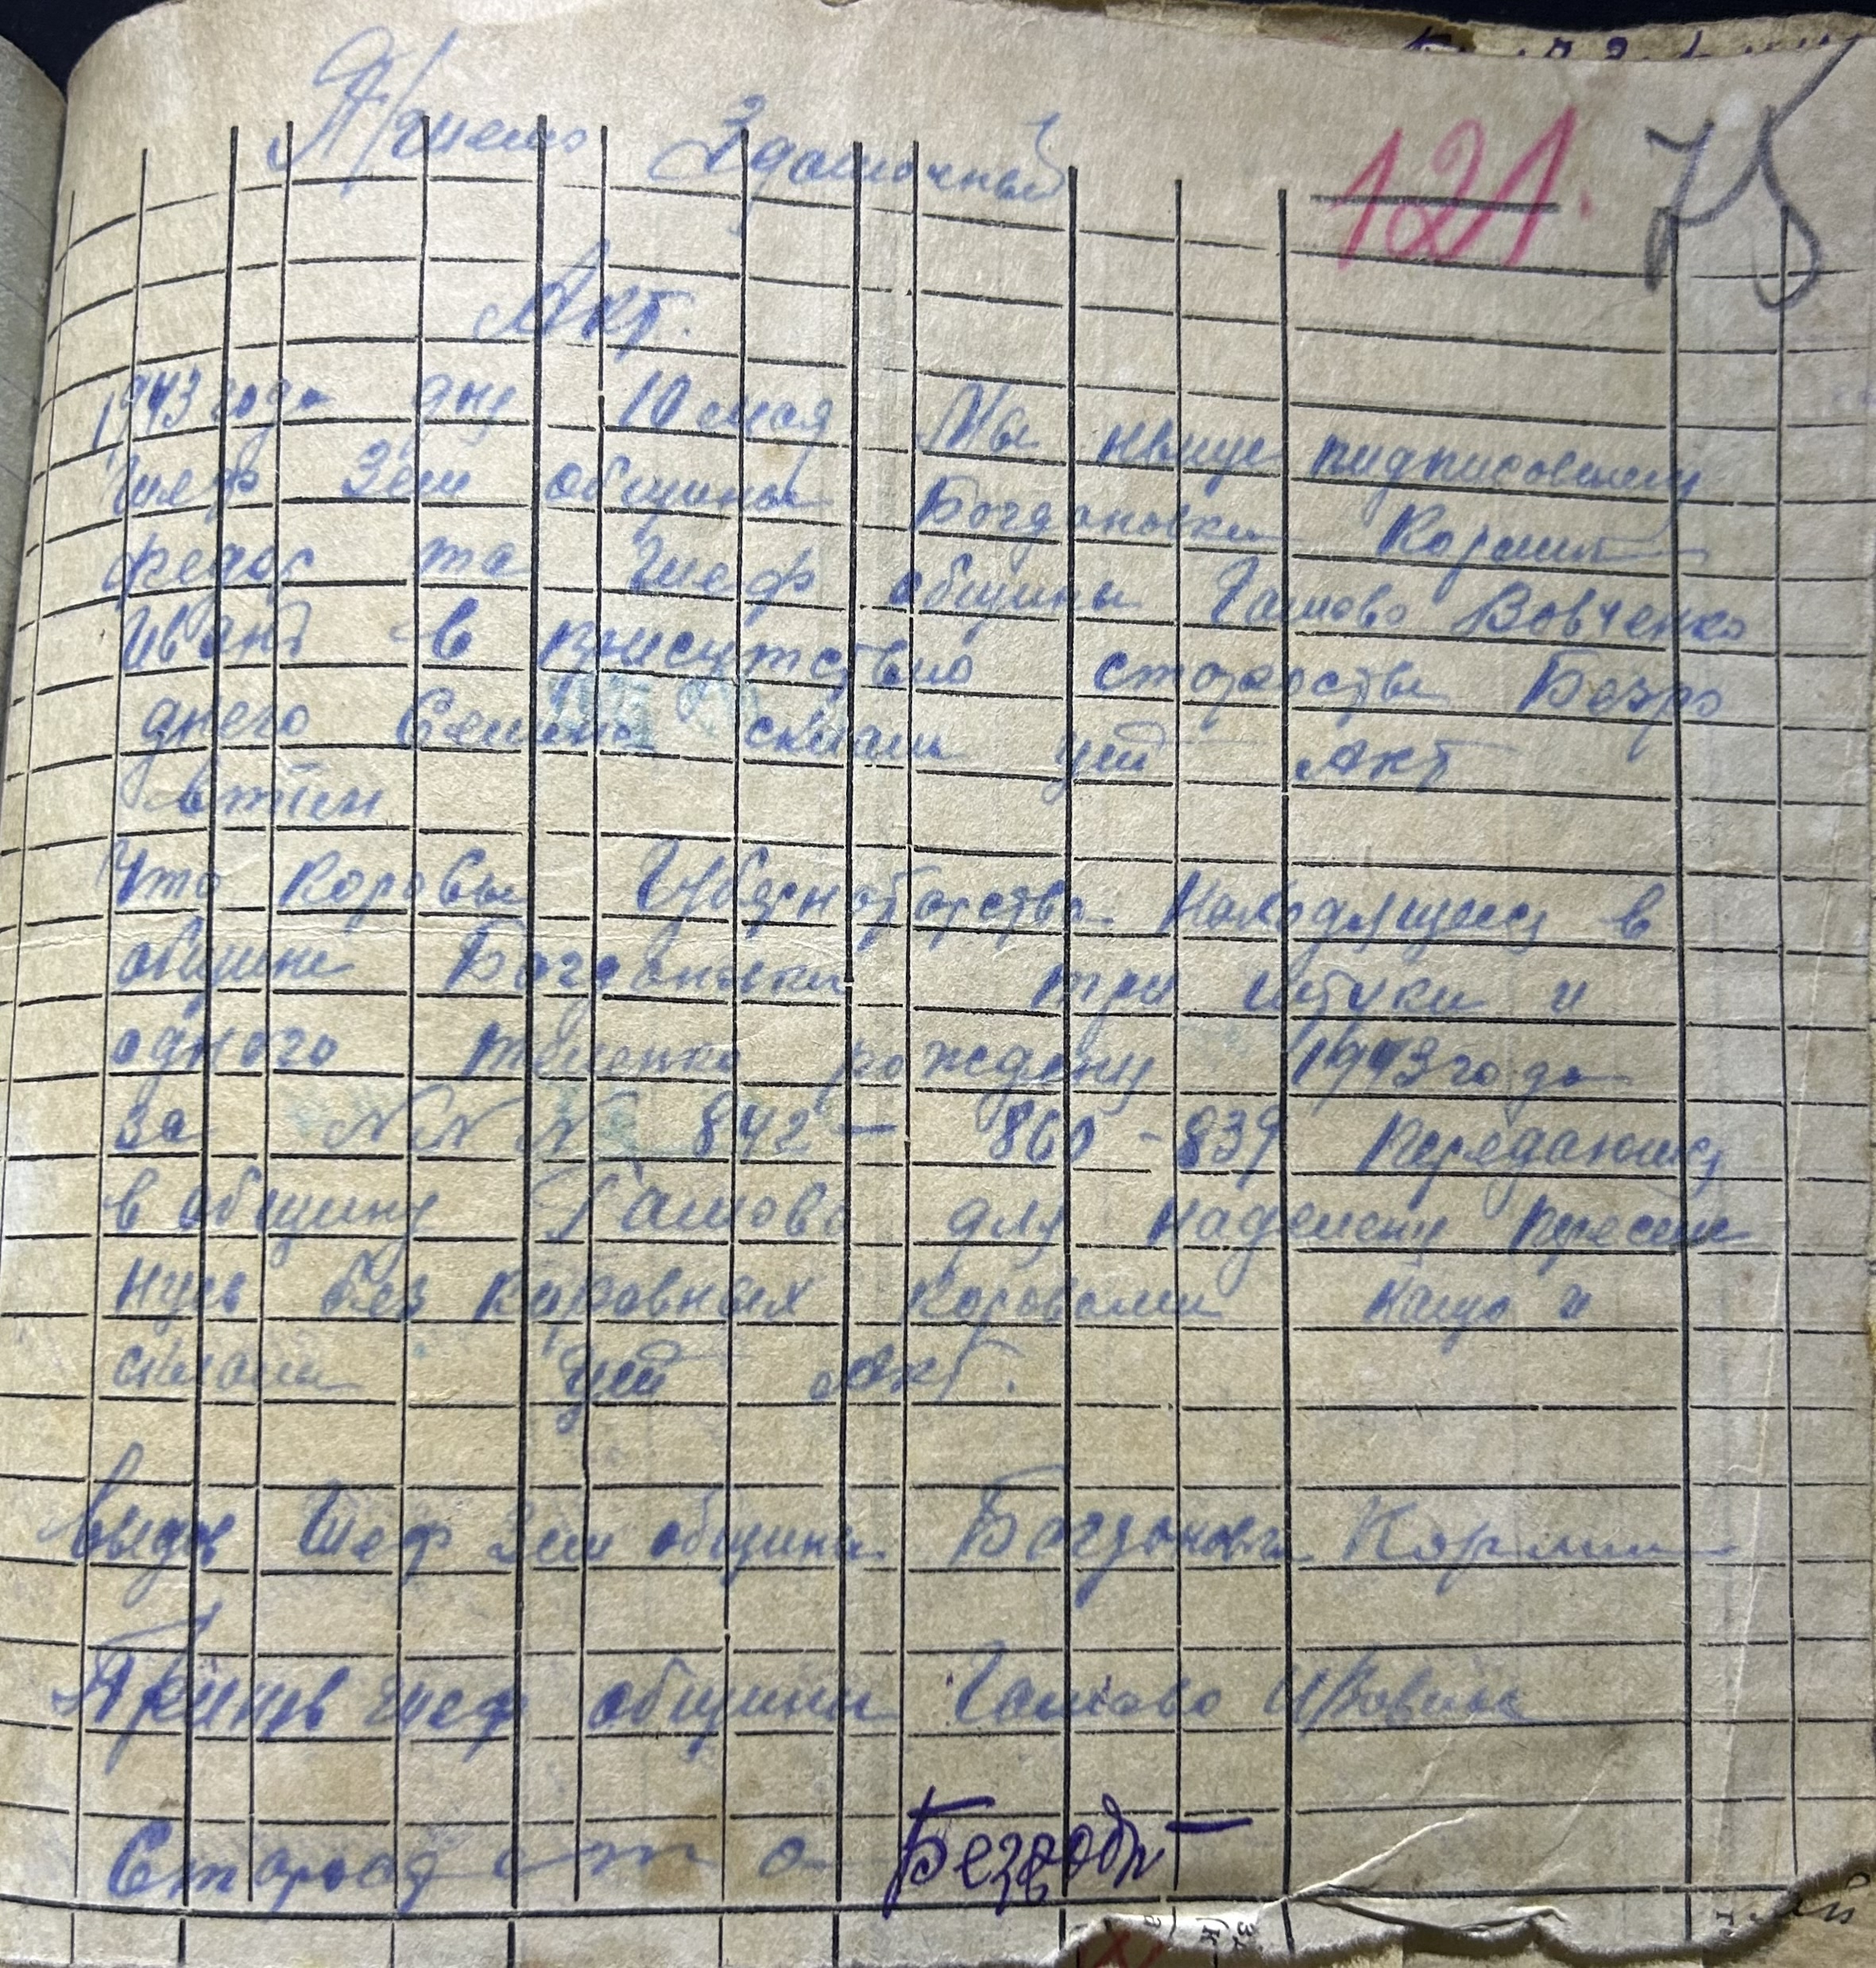 Приемо Здаточный
121. 75
Акт.
1943 года дня 10 мая Мы ныще пидписовшися
Шеф Зем общины Богдановки Кормит
Федор та Шеф общины Гамово Вовченко
Иван в присутствию старосты Безро
днего Семена склали цей Акт
втим
Что коровы Губернаторства Находящися в
общине Богдановки три штуки и
одного теленка рождения 1943 года
за №№№ 842 - 860 - 839 Передаются
в общину Гамово для наделены
без коровных коровами Нащо и
склали цей Акт.
Выдав Шеф Зем общины Богдановка
Принув шеф общины Гамово
Староста Безродн